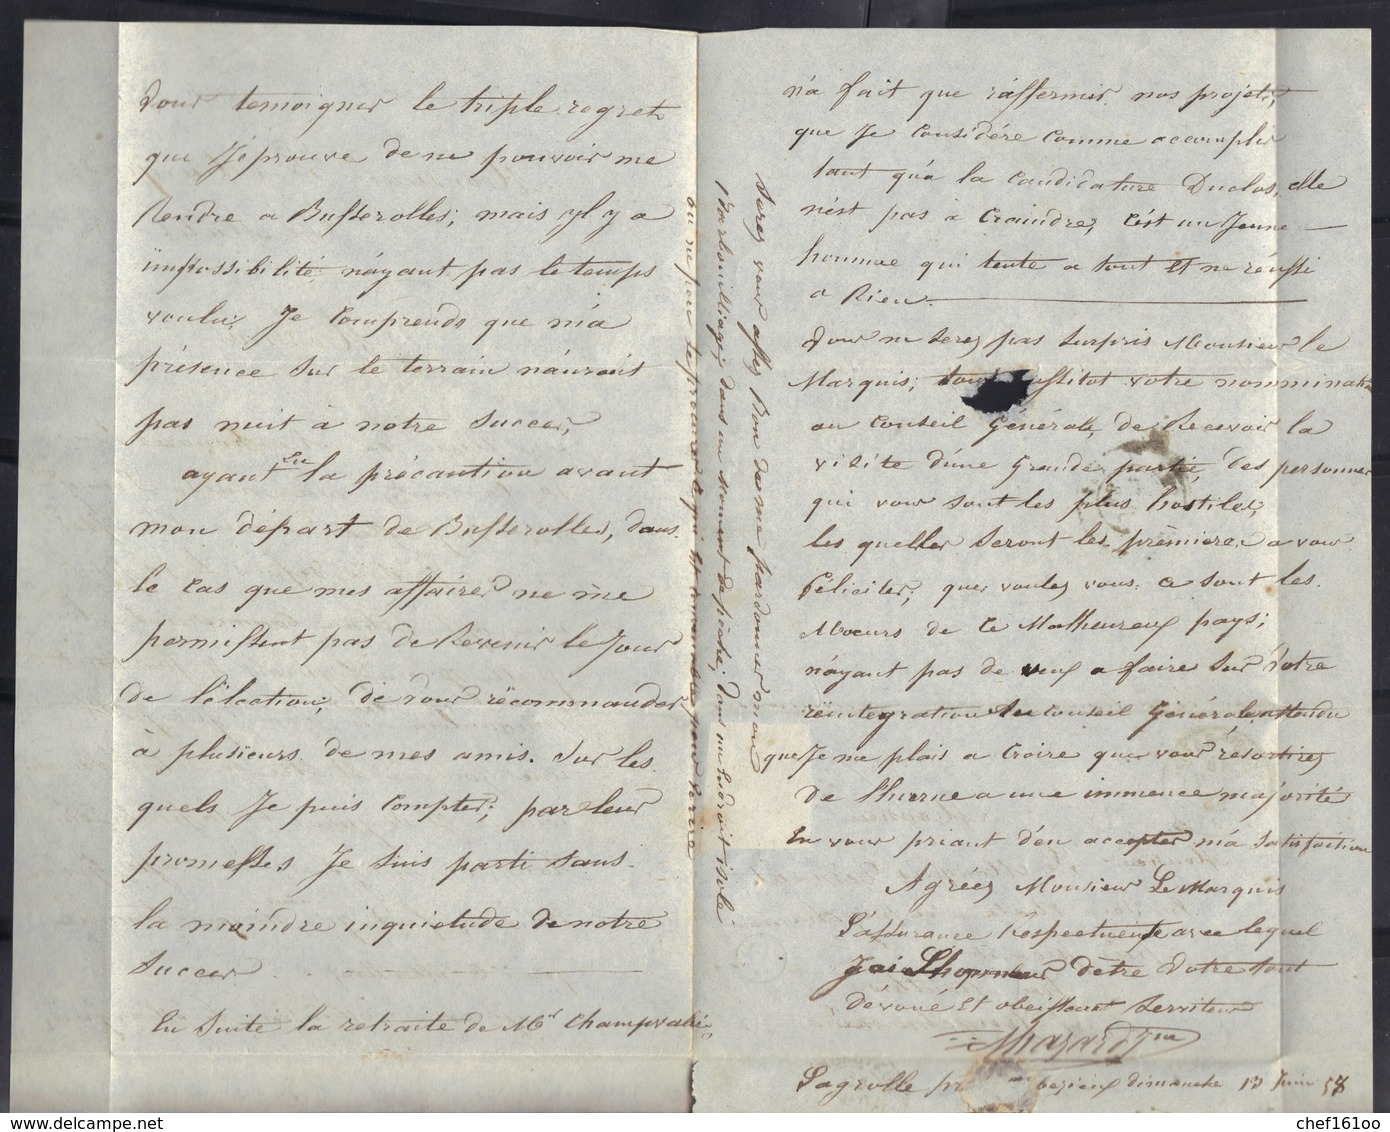 Vous temoigner le triple regret
que J'éprouve de ne pouvoir me
Rendre a Busserolles; mais yl y a
impossibilité n'ayant pas le temps
voulu. Je Comprends que m'a
présence Sur le terrain n'aurait
pas nuit à notre Succes,
ayant eu la précaution avant
mon départ de Busserolles, dans
le Cas que mes affaires ne me
permissent pas de Revenir le Jour
de l'élection, de vous recommander
à plusieurs de mes amis. Sur les
quels Je puis Compter; par leur
promesses Je Suis parti Sans
la moindre inquietude de notre
Succes
En Suite la retraite de Mr Champvalié
n'a fait que raffermir nos projets,
que Je Considére Comme accomplis
tant qu'a la Candidature Duclos, elle
n'est pas à Craindre, C'est un Jeune
homme qui tente a tout Et ne réussi
a Rien.
Vous ne Serez pas Surpris Monsieur le
Marquis; tout aussitot votre nommination
au Conseil Générale, de Recevoir la
visite d'une Grande partie des personnes
qui vous Sont les plus hostiles;
les quelles Seront les prémieres a vous
féliciter, que voulez vous. Ce Sont les
Moeurs de Ce Malheureux pays;
n'ayant pas de veux a faire Sur Votre
réintegration au Conseil Générale attendu
que Je me plais a Croire que vous résortirez
de l'hurne a une immence majorité
En vous priant d'en accepter m'a Satisfaction
Agréez Monsieur Le Marquis
L'assurance Respectueuse avec lequel
J'ai L'honneur d'être Votre tout
dévoué Et obeissant Serviteur
Mazard Jne
Lagrolle pr bezieux dimanche 13 Juin 58
Serez vous assez Bon de me pardonner mon
Barbouilliage, dans un moment de pêche, dans un Endroit isolé
ou ne peu Se procurer Ce qui Et convenable pour Ecrire
chef16100